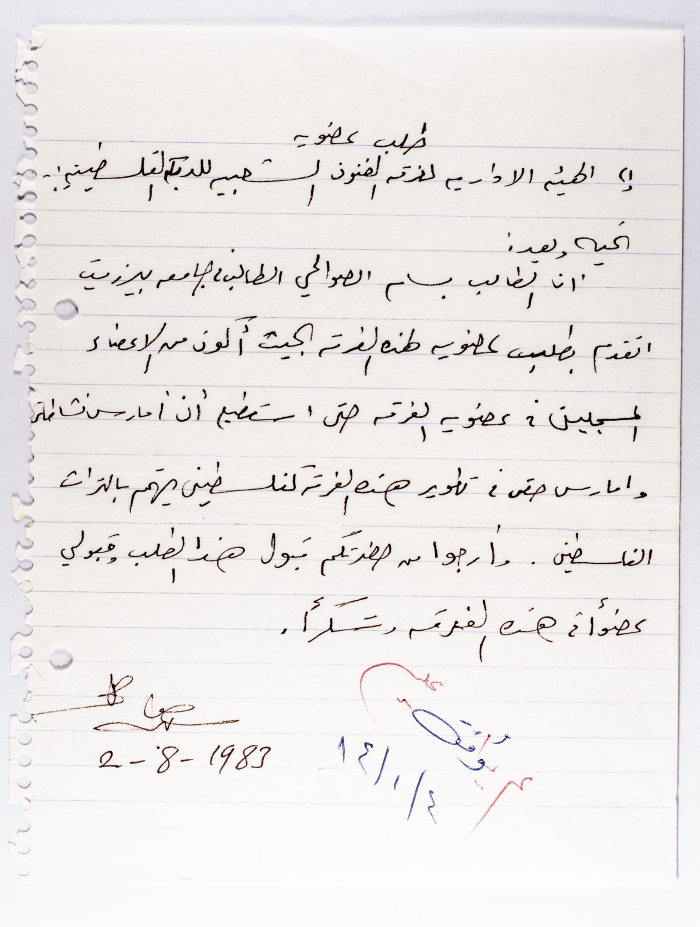 طلب عضويه
إلى الهيئه الاداريه لفرقه الفنون الشعبيه للدبكه الفلسطينيه :-
تحيه وبعد :
انا الطالب بسام الصوالحي الطالب في جامعه بيرزيت
اتقدم بطلب عضويه لهذه الفرقه بحيث أكون من الاعضاء
المسجلين في عضويه الفرقه حتى استطيع أن أمارس نشاطي
وامارس حقي في تطوير هذه الفرقة كفلسطيني يهتم بالتراث
الفلسطيني . وأرجوا من حضرتكم قبول هذا الطلب وقبولي
عضوأ في هذه الفرقه وشكرأ .
2-8-1983